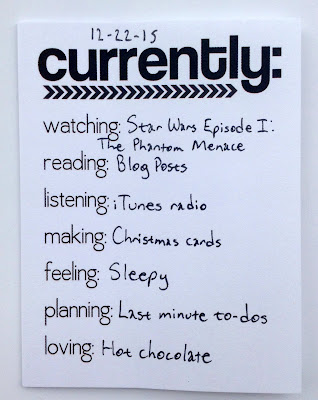 12-22-15
currently:
watching: Star Wars Episode I:
The Phantom Menace
reading: Blog Posts
listening: iTunes radio
making: Christmas cards
feeling: Sleepy
planning: Last minute to-dos
loving: Hot chocolate